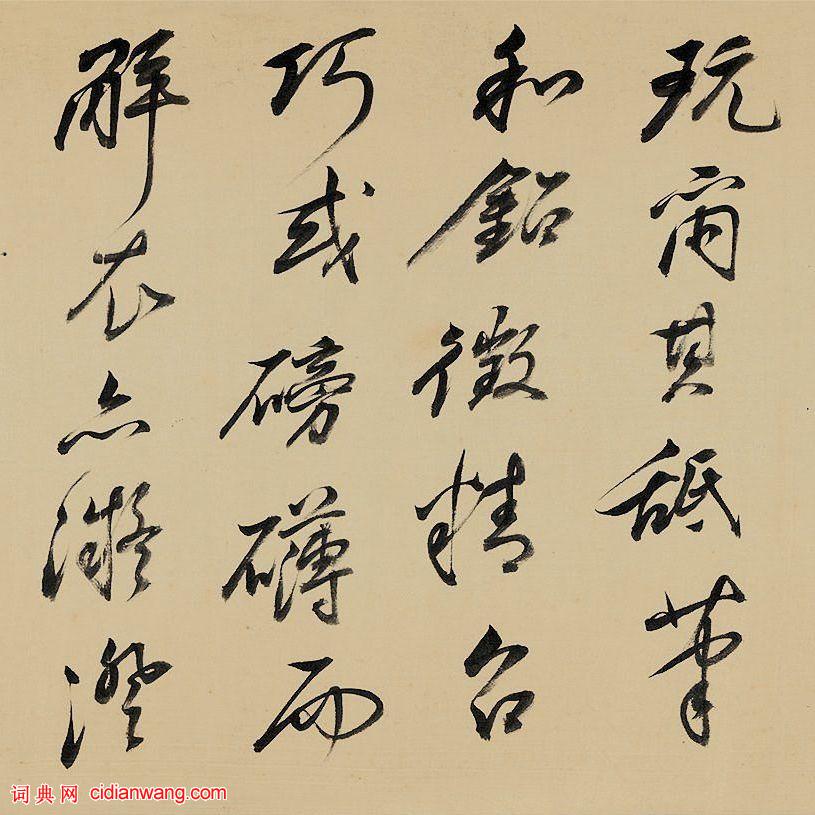 玩爾其舐筆
和鉛徵精召
巧或磅礴而
解衣亦凝澄
词典网 cidianwang.com